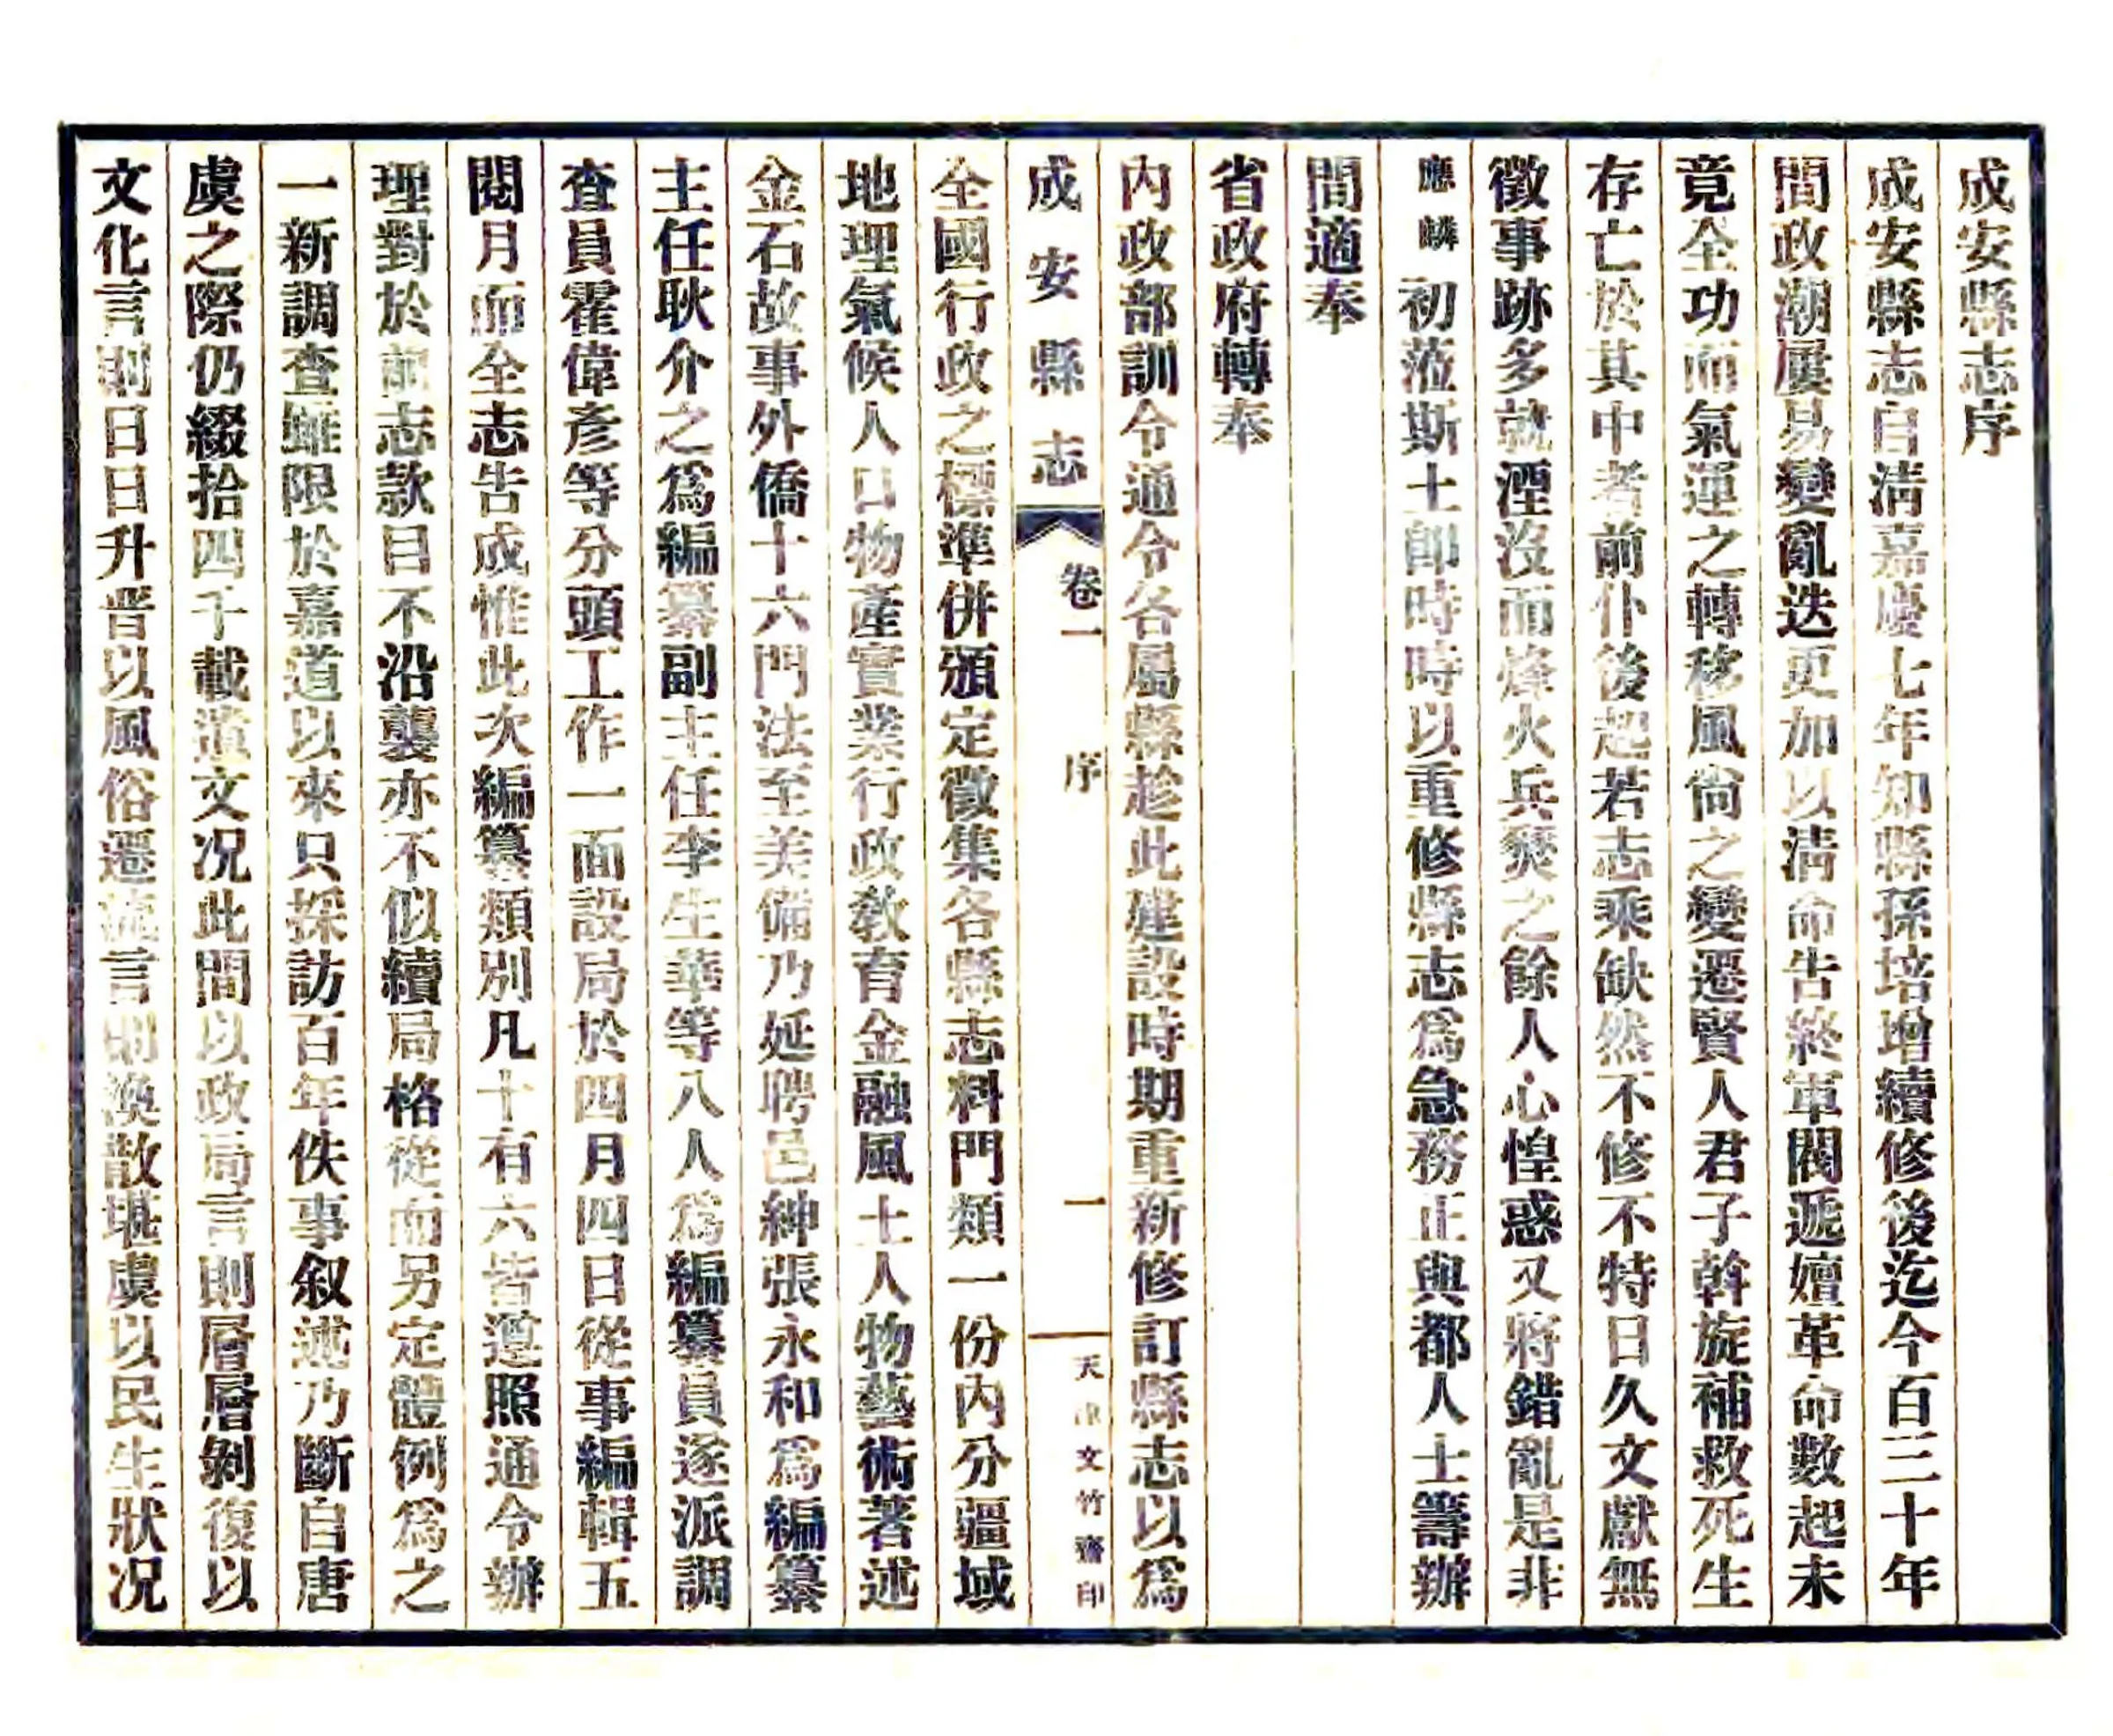 成安縣志序
成安縣志自清嘉慶七年知縣孫培增續修後迄今百三十年
間政潮屢易變亂迭更加以清命告終軍閥遞嬗革命數起未
竟全功而氣運之轉移風尙之變遷賢人君子斡旋補救死生
存亡於其中者前仆後起若志乘缺然不修不特日久文獻無
徵事跡多就湮沒而烽火兵燹之餘人心惶惑又將錯亂是非
應麟初蒞斯土卽時時以重修縣志爲急務正與都人士籌辦
間適奉
省政府轉奉
內政部訓令通令各屬縣趁此建設時期重新修訂縣志以爲
成安縣志 卷一 序 一 天津文竹齋印
全國行政之標準併頒定徵集各縣志料門類一份內分疆域
地理氣候人口物產實業行政敎育金融風土人物藝術著述
金石故事外僑十六門法至美備乃延聘邑紳張永和爲編纂
主任耿介之爲編纂副主任李生華等八人爲編纂員遂派調
查員霍偉彥等分頭工作一面設局於四月四日從事編輯五
閱月而全志告成惟此次編纂類別凡十有六皆遵照通令辦
理對於前志款目不沿襲亦不似續局格從而另定體例爲之
一新調查雖限於嘉道以來只採訪百年佚事叙述乃斷自唐
虞之際仍綴拾四千載遺文况此間以政局言則層層剝復以
文化言則日日升晋以風俗遷流言則渙散堪虞以民生狀况